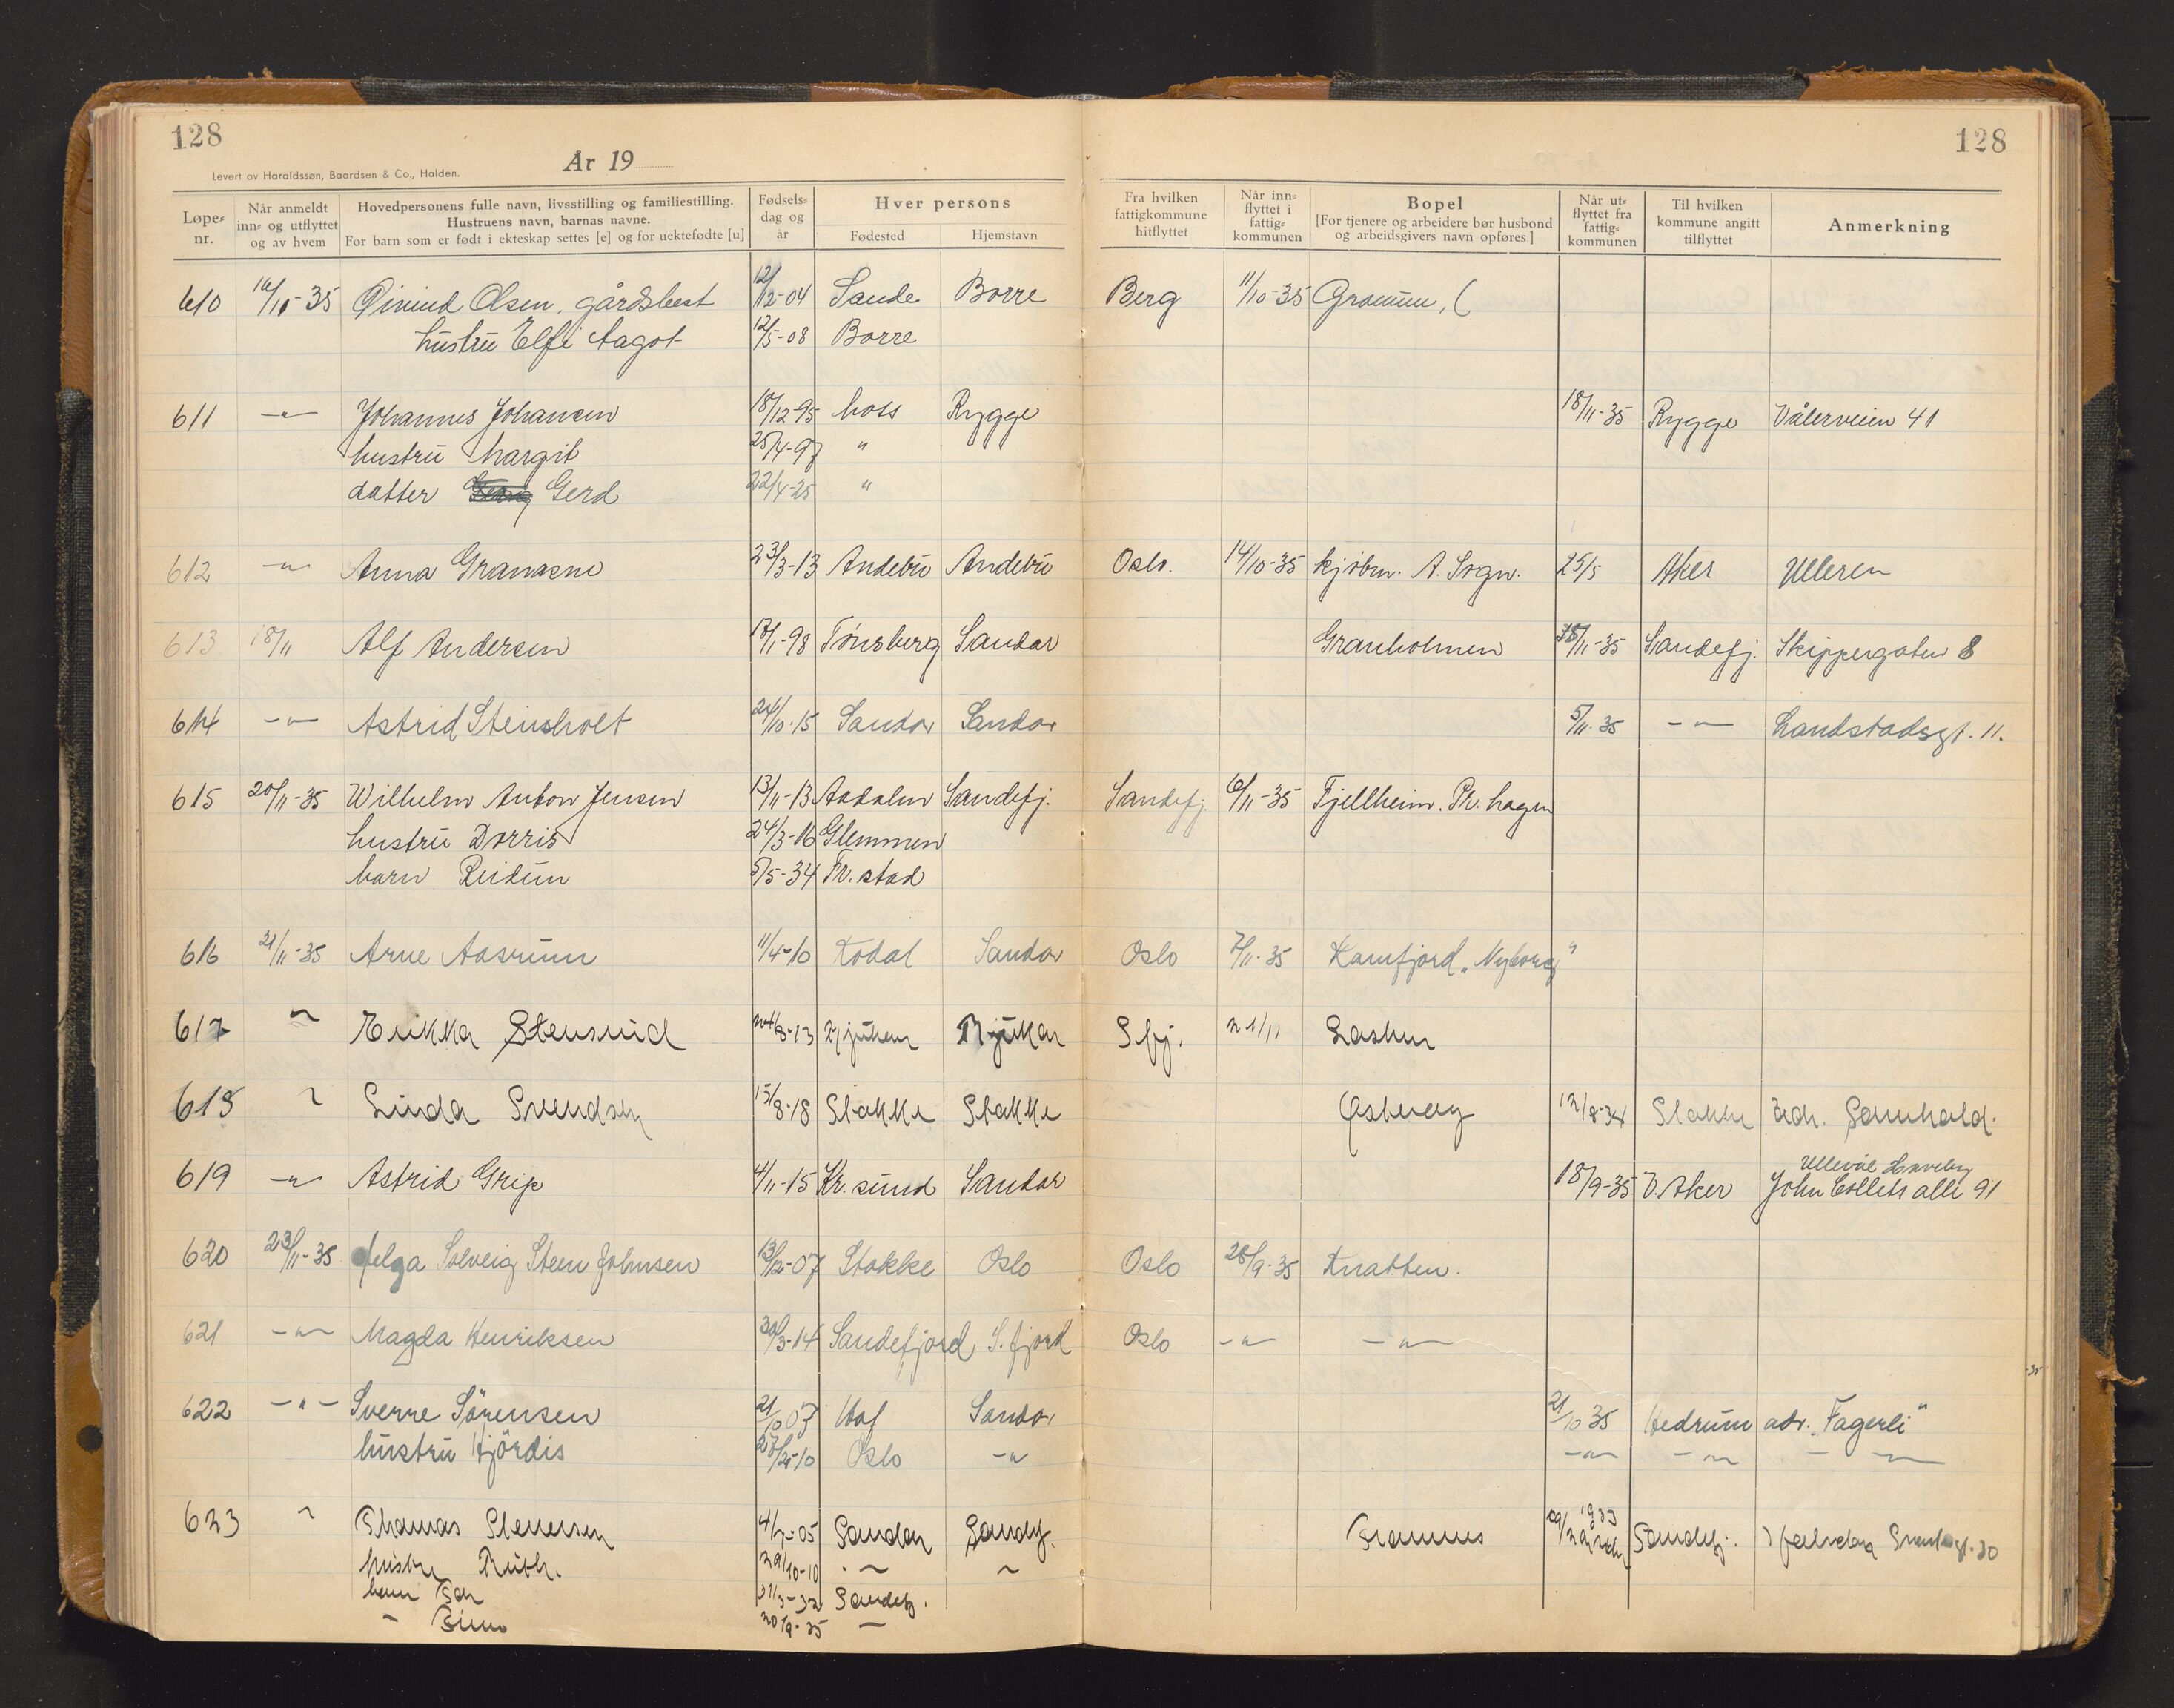 128
128
År 19
Levert av Haraldssøn, Baardsen & Co., Halden.
Løpe-nr. | Når anmeldt inn- og utflyttet og av hvem | Hovedpersonens fulle navn, livsstilling og familiestilling. Hustruens navn, barnas navne. For barn som er født i ekteskap settes [e] og for uektefødte [u] | Fødsels-dag og år | Hver persons Fødested | Hjemstavn | Fra hvilken fattigkommune hitflyttet | Når inn-flyttet i fattig-kommunen | Bopel [For tjenere og arbeidere bør husbond og arbeidsgivers navn opføres.] | Når ut-flyttet fra fattig-kommunen | Til hvilken kommune angitt tilflyttet | Anmerkning
610 16/11-35 Øivind Olsen, gårdsbest 12/12-04 Sande Borre Berg 11/10-35 Gramum, (
hustru Elfi Aagot 12/5-08 Borre
611 -"- Johannes Johansen 18/12-95 Moss Rygge 18/11-35 Rygge Vålerveien 41
hustru Margit 25/4-97 "
datter Gerd 22/4-25 "
612 -"- Anna Granasne 23/3-13 Andebu Andebu Oslo. 14/10-35 kjøbm. A. Sogn. 25/5 Aker Ulleren
613 18/11 Alf Andersen 17/1-98 Tønsberg Sandar Granholmen 15/11-35 Sandefj. Skippergaten 8
614 -"- Astrid Steinsholt 24/10-15 Sandar Sandar 5/11-35 -"- Landstadsgt. 11.
615 20/11-35 Wilhelm Anton Jensen 13/11-13 Aadalen Sandefj. Sandefj. 6/11-35 Fjellheim. Pr. hagen
hustru Dorris 24/3-16 Glemmen
barn Reidun 5/5-34 Fr. stad
616 21/11-35 Arne Aasrum 11/4-10 Kodal Sandar Oslo 7/11-35 Kamfjord "Nyborg"
617 " Rukka Stensrud 24/8-13 Rjukan Rjukan Sfj. 21/11 Lasken
618 " Linda Svendsen 15/8-18 Stokke Stokke Østberg 12/8-34 Stokke adr. Somhold.
619 -"- Astrid Grip 4/11-15 Kr. sund Sandar 18/9-35 V. Aker Ullevål Haveby John Colletts alle 91
620 23/11-35 Helga Solveig Steen Johnsen 13/2-07 Stokke Oslo Oslo 28/9-35 Knatten.
621 -"- Magda Henriksen 30/3-14 Sandefjord S. fjord Oslo -"- -"-
622 -"- Sverre Sörensen 21/10 07 Hof Sandar 21/10 35 Hedrum adr. "Fagerli"
hustru Hjördis 27/2-10 Oslo -"- -"- -"- -"-
623 " Thomas Stenersen 4/7-05 Sandar Sandefj. Framnes 1933 Sandefj.
hustru Ruth. 29/10-10 " "
barn Tor 31/3-32 Sandefj.
" 20/9-35 "